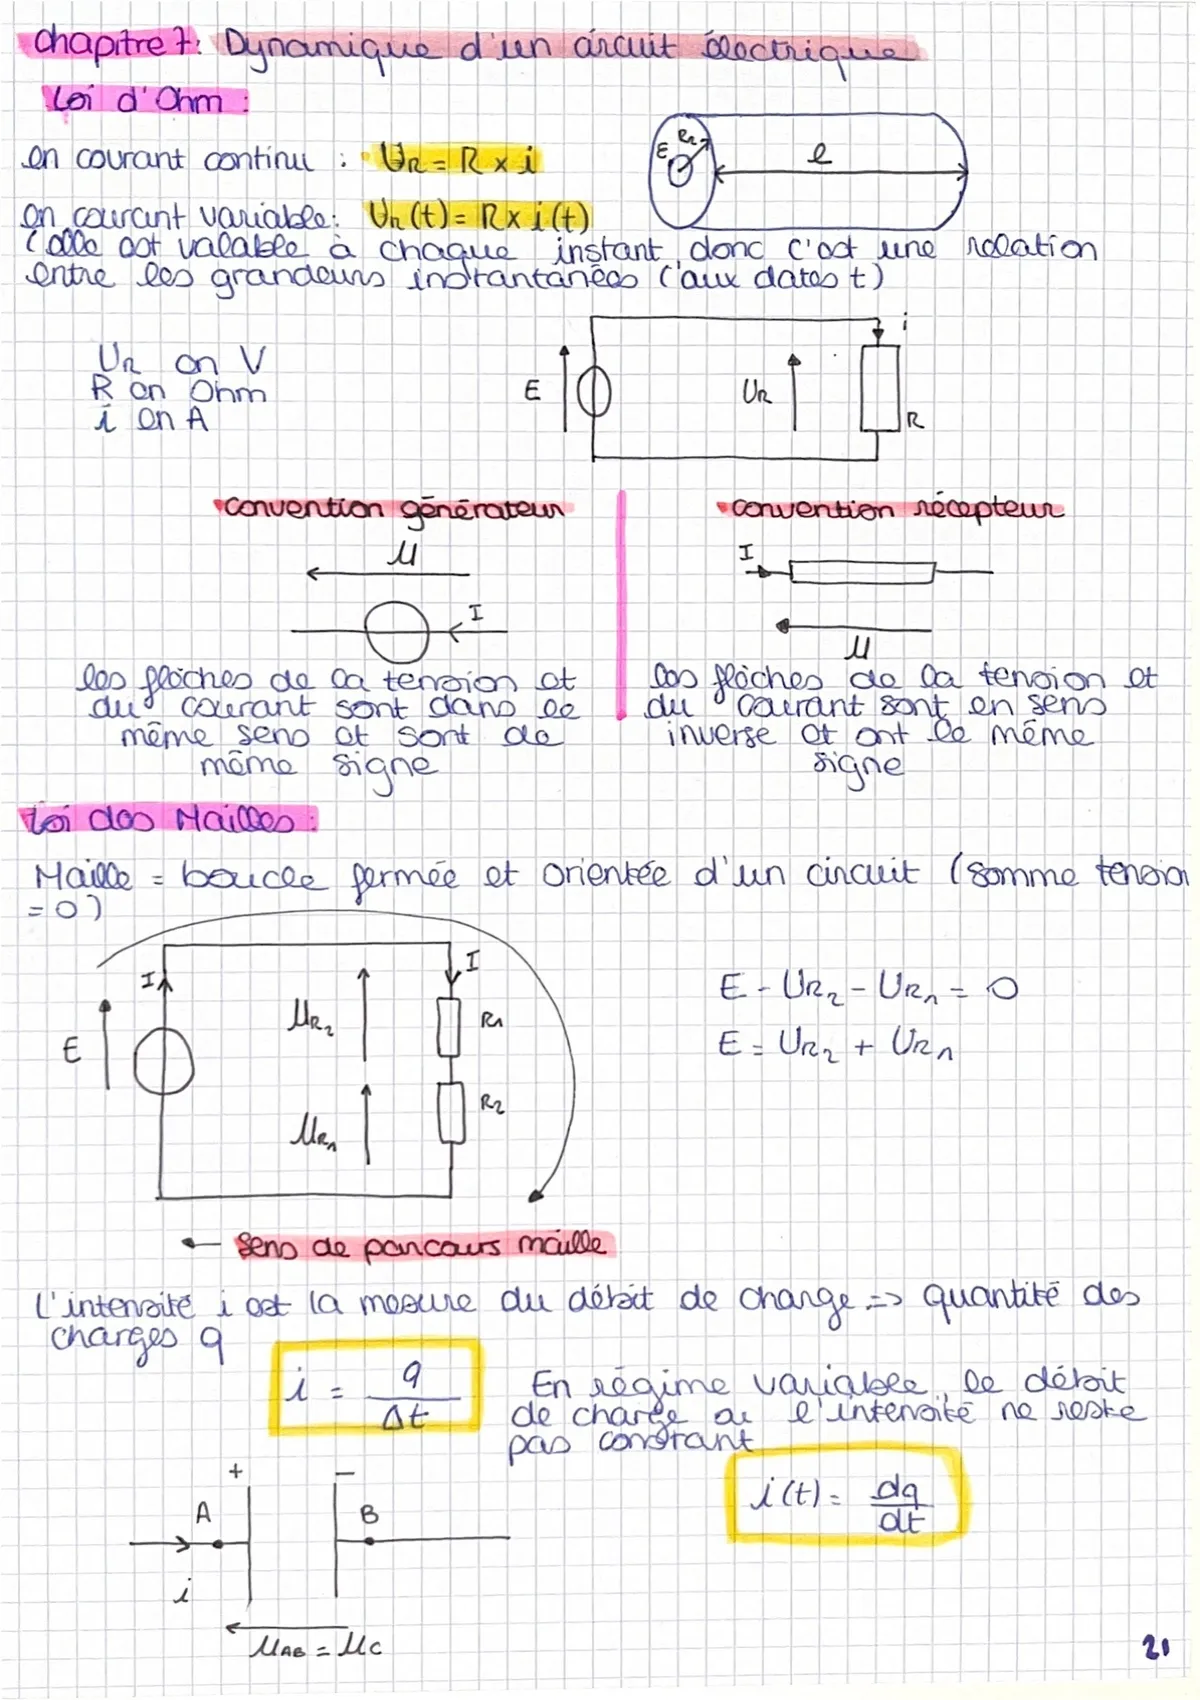 chapitre 7: Dynamique d'un circuit électrique
Loi d'Ohm :
en courant continu : UR = R x i
E R2 l
en courant variable: UR(t) = R x i(t)
(elle est valable à chaque instant, donc c'est une relation
entre les grandeurs instantanées (aux dates t)
i
UR en V
R en Ohm
i en A
E UR R
convention générateur convention récepteur
U I
I
U
les flèches de la tension et
du courant sont dans le
même sens et sont de
même signe
les flèches de la tension et
du courant sont en sens
inverse et ont le même
signe
Loi des Mailles :
Maille = boucle fermée et orientée d'un circuit (somme tension
= 0)
I I
E UR2 R1
UR1 R2
E - UR2 - UR1 = 0
E = UR2 + UR1
← sens de parcours maille
L'intensité i est la mesure du débit de charge => quantité des
charges q
i = q
Δt
En régime variable, le débit
de charge ou l'intensité ne reste
pas constant
i(t) = dq
dt
+ −
A B
i
UAB = UC
21